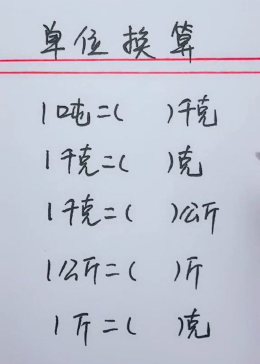 单位换算
1吨=( )千克
1千克=( )克
1千克=( )公斤
1公斤=( )斤
1斤=( )克